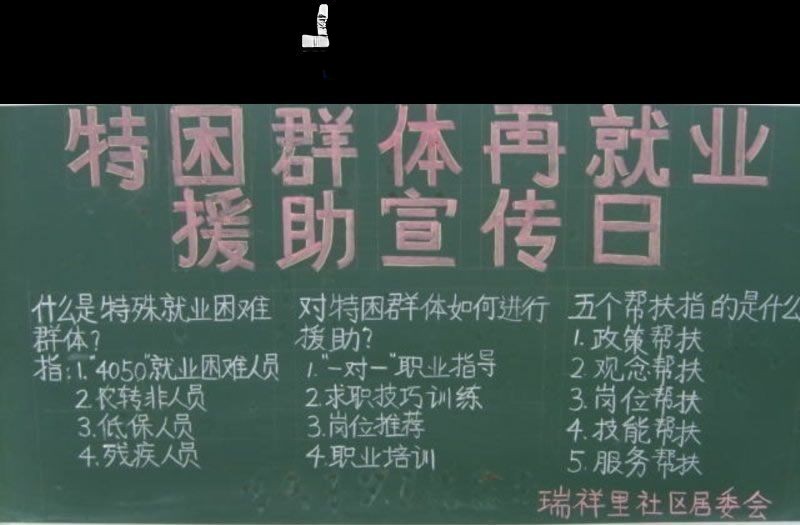 特困群体再就业
援助宣传日
什么是特殊就业困难
群体?
指:1."4050"就业困难人员
2.农转非人员
3.低保人员
4.残疾人员
对特困群体如何进行
援助?
1."一对一"职业指导
2.求职技巧训练
3.岗位推荐
4.职业培训
五个帮扶指的是什么
1.政策帮扶
2.观念帮扶
3.岗位帮扶
4.技能帮扶
5.服务帮扶
瑞祥里社区居委会